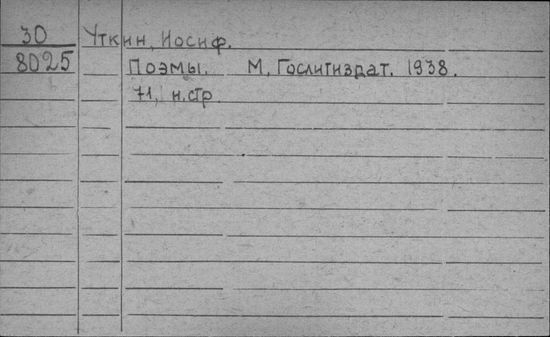 30 Уткин, Иосиф.
8025 Поэмы. М, Гослитиздат. 1938.
71, н.стр